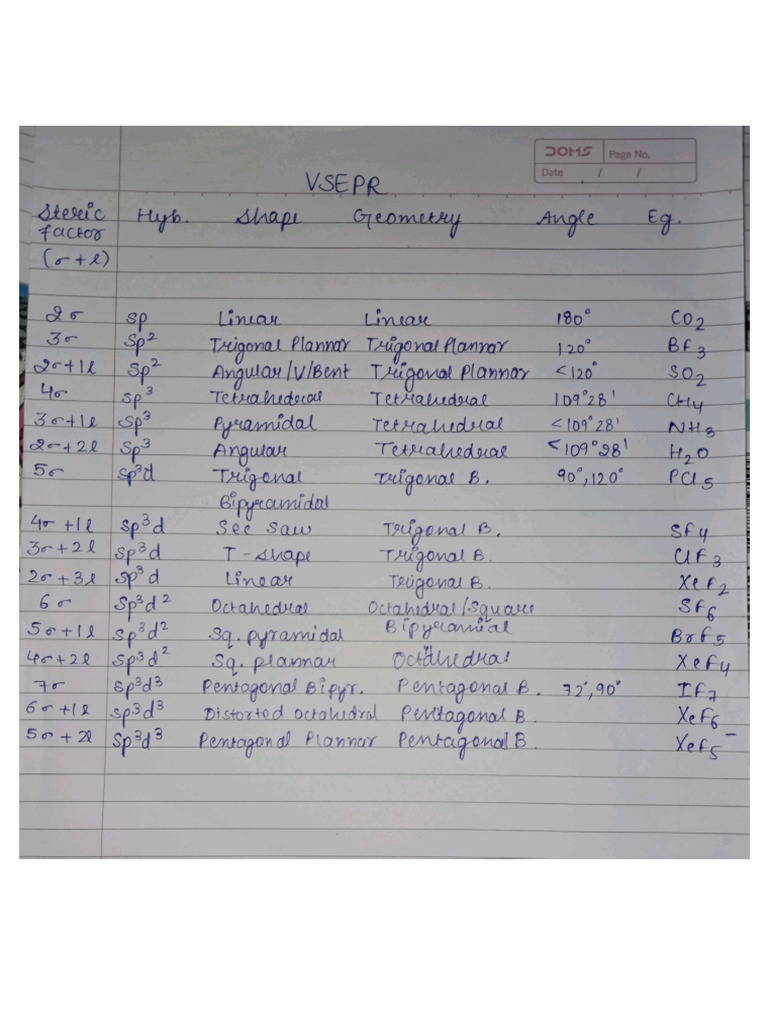 DOMS Page No.
Date / /
VSEPR
Steric Hyb. Shape Geometry Angle Eg.
factor
(σ+l)
2σ sp Linear Linear 180° CO2
3σ Sp² Trigonal Plannar Trigonal Plannar 120° BF3
2σ+1l Sp² Angular/V/Bent Trigonal Plannar <120° SO2
4σ sp³ Tetrahedral Tetrahedral 109°28' CH4
3σ+1l Sp³ Pyramidal Tetrahedral <109°28' NH3
2σ+2l Sp³ Angular Tetrahedral <109°28' H2O
5σ sp³d Trigonal Trigonal B. 90°,120° PCl5
Bipyramidal
4σ+1l Sp³d See Saw Trigonal B. SF4
3σ+2l Sp³d T-shape Trigonal B. ClF3
2σ+3l Sp³d Linear Trigonal B. XeF2
6σ Sp³d² Octahedral Octahedral/Square SF6
5σ+1l Sp³d² Sq. pyramidal Bipyramial BrF5
4σ+2l Sp³d² Sq. plannar Octahedral XeF4
7σ Sp³d³ Pentagonal Bipyr. Pentagonal B. 72°,90° IF7
6σ+1l Sp³d³ Distorted Octahedral Pentagonal B. XeF6
5σ+2l Sp³d³ Pentagonal Plannar Pentagonal B. XeF5⁻